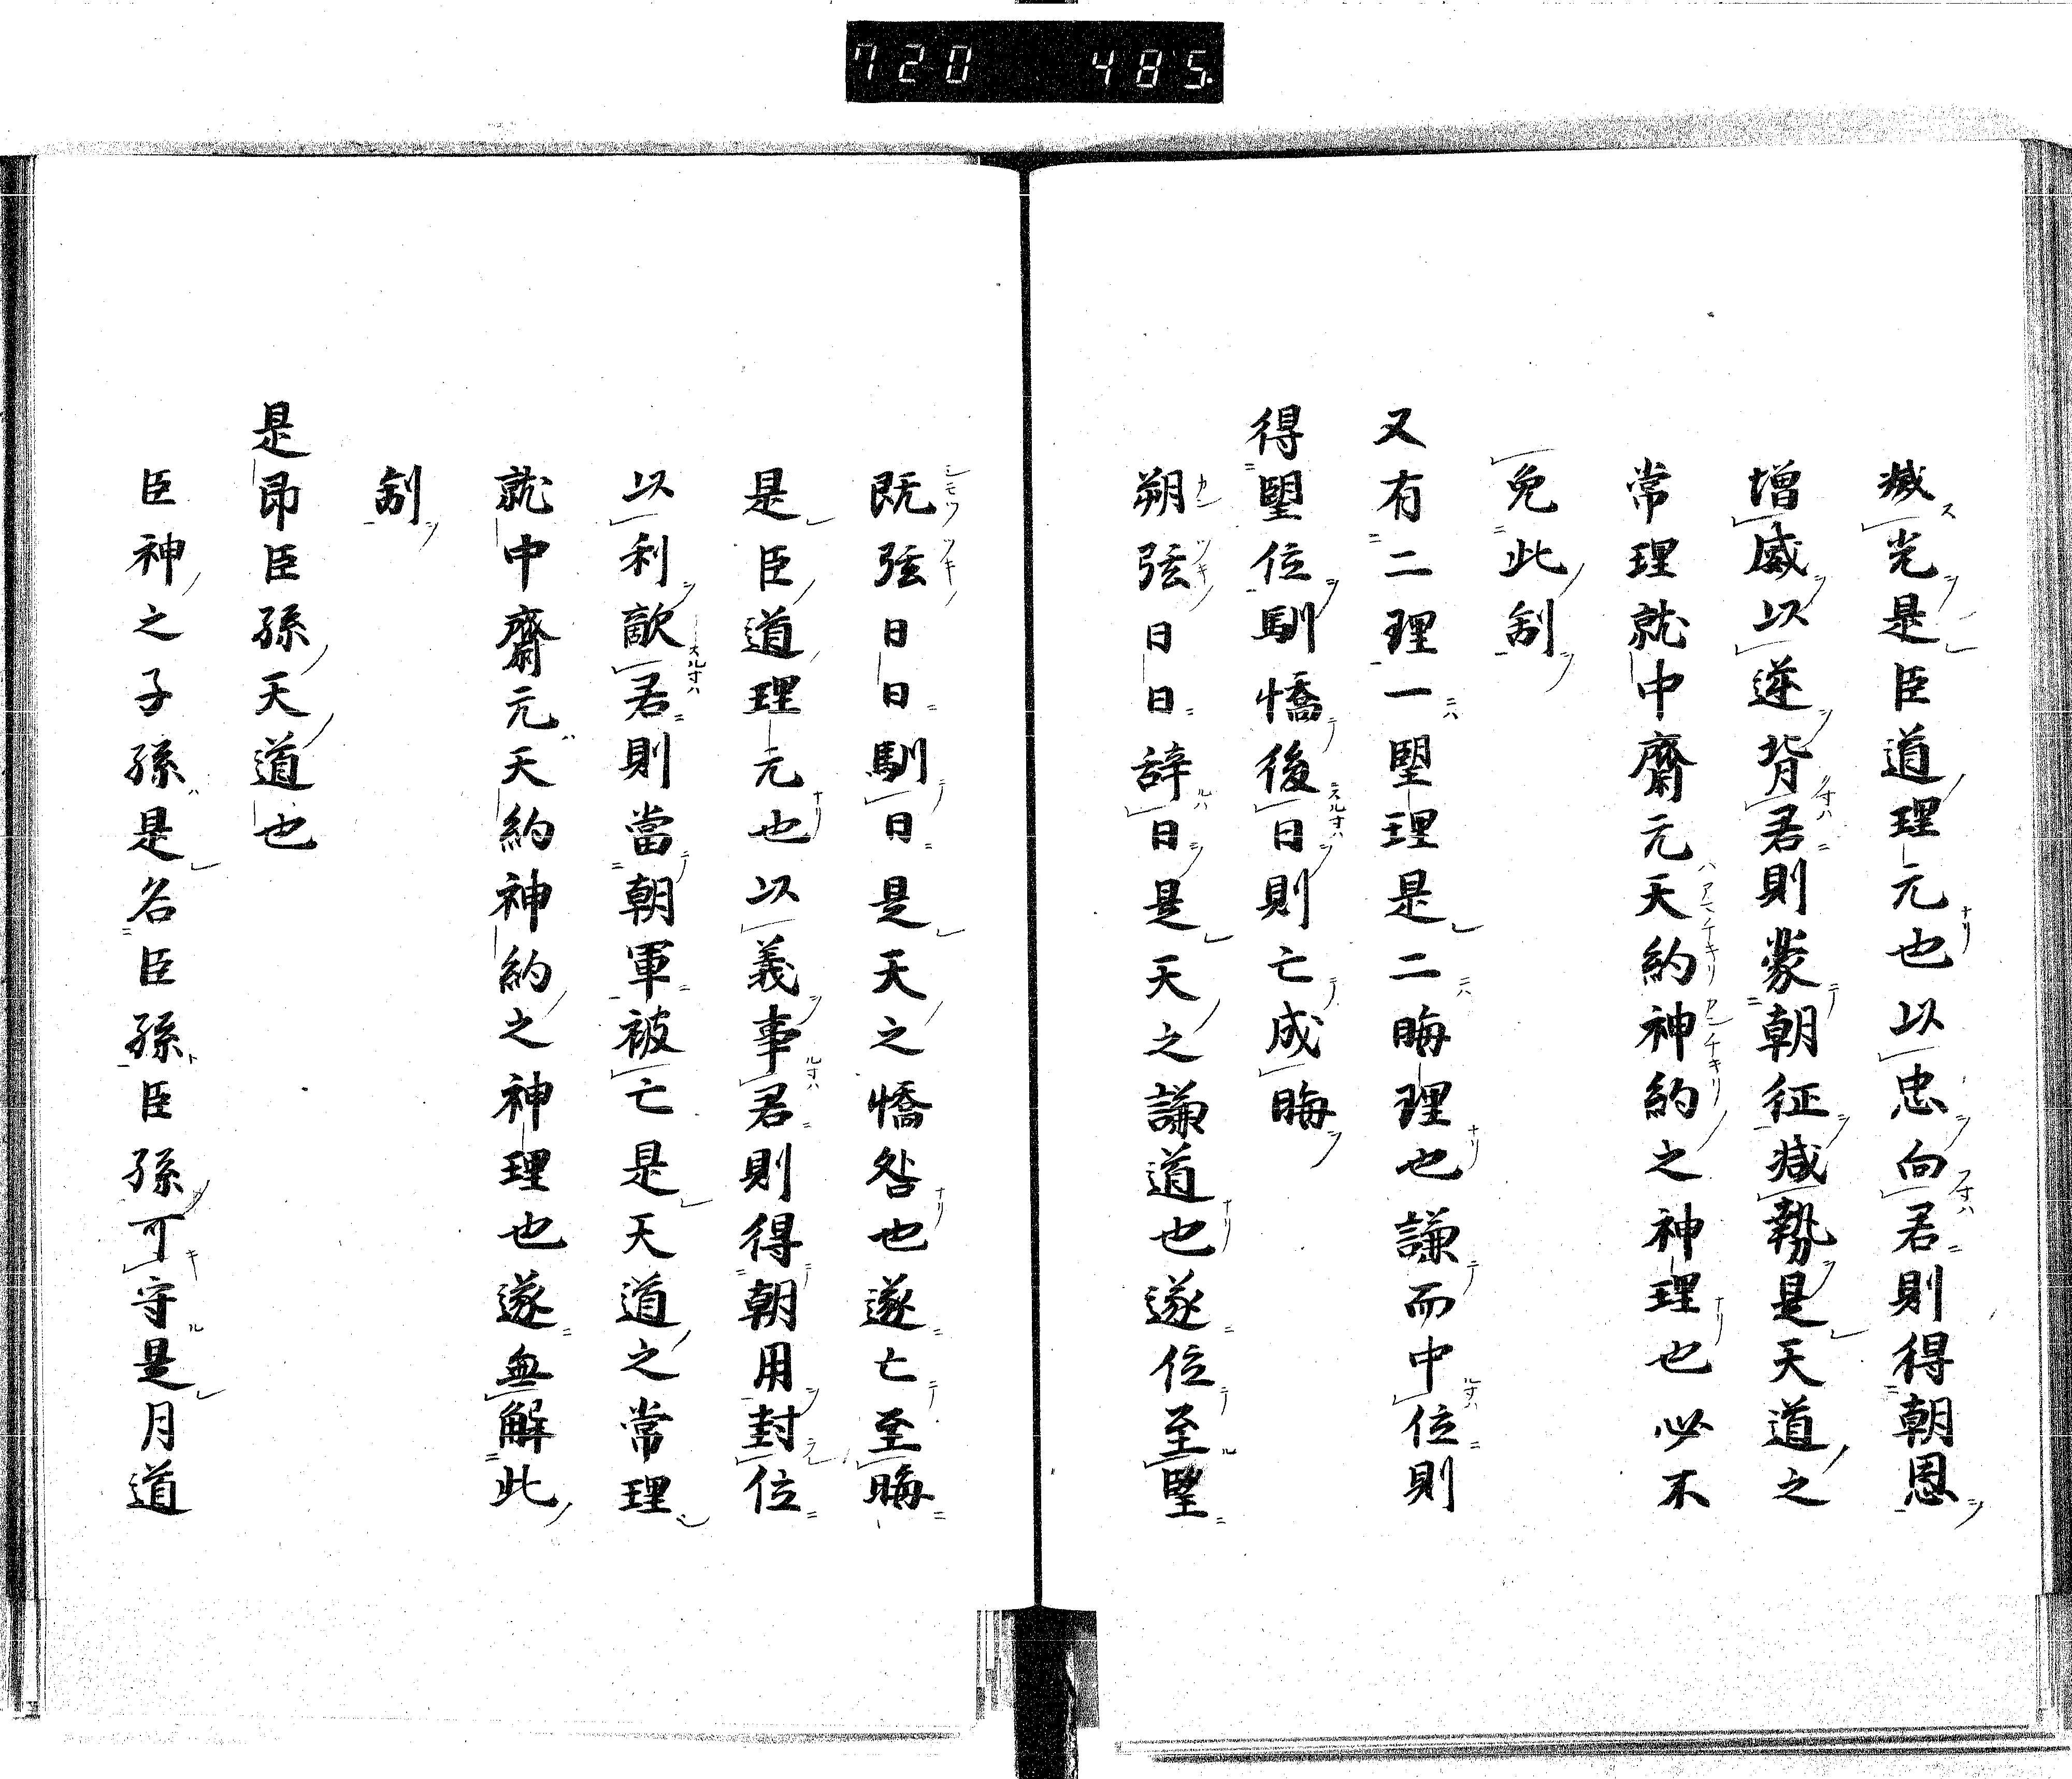 720 485
減光是臣道理元也以忠向君則得朝恩
増威以逆背君則蒙朝征減勢是天道之
常理就中齋元天約神約之神理也必不
免此剖
又有二理一朢理是二晦理也謙而中位則
得朢位馴憍後日則亡成晦
朔弦日日辞日是天之謙道也遂位至朢
既弦日日馴日是天之憍咎也遂亡至晦
是臣道理元也以義事君則得朝用封位
以利敵君則當朝軍被亡是天道之常理
就中齋元天約神約之神理也遂無解此
剖
是即臣孫天道也
臣神之子孫是名臣孫臣孫可守是月道